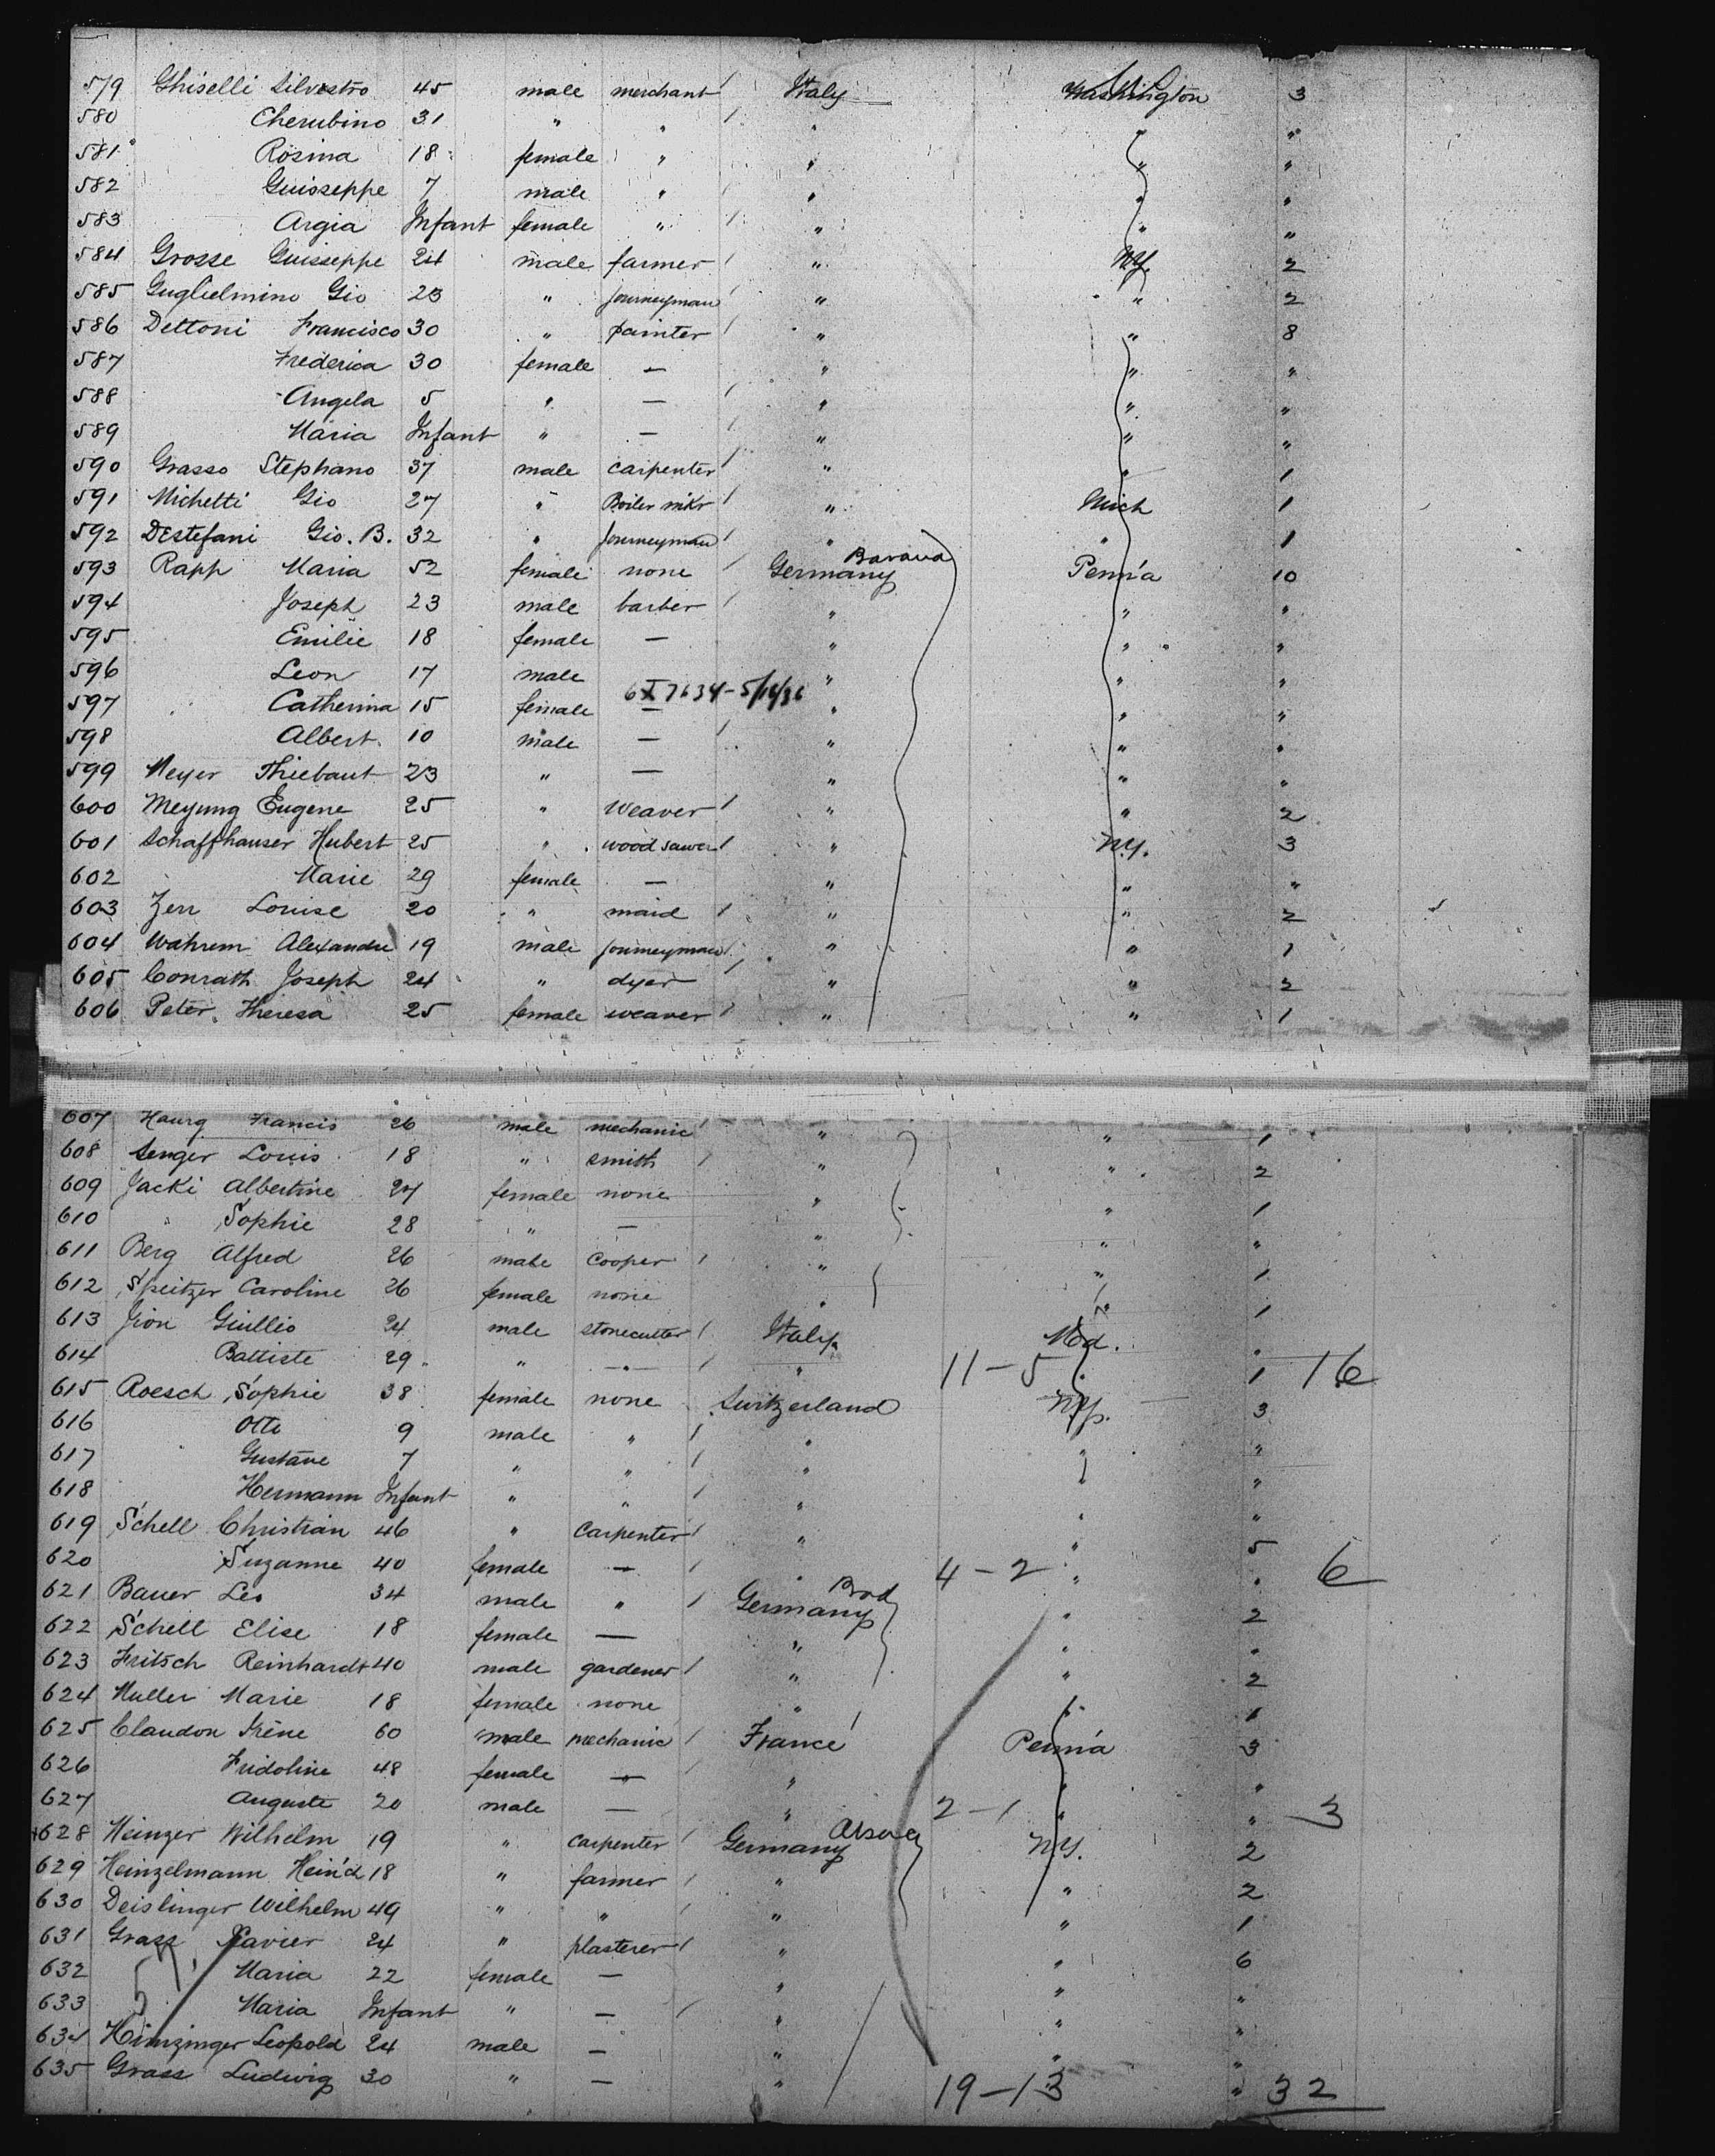 579 Ghiselli Silvestro 45 male merchant / Italy Washington 3
580 Cherubino 31 " " / " " "
581 Rosina 18 female " " " "
582 Guisseppe 7 male " / " " "
583 Argia Infant female " / " " "
584 Grosse Guisseppe 24 male farmer / " N.Y. 2
585 Guglielmino Gio 23 " Journeyman / " " 2
586 Dettoni Francisco 30 " painter / " " 8
587 Frederica 30 female — " " "
588 Angela 5 " — / " " "
589 Maria Infant " — / " " "
590 Grasso Stephano 37 male carpenter / " " 1
591 Michetti Gio 27 " Boiler mkr / " Mich 1
592 DEstefani Gio. B. 32 " Journeyman / " " 1
Bavaria
593 Rapp Maria 52 female none / Germany Penn'a 10
594 Joseph 23 male barber / " " "
595 Emilie 18 female — " " "
596 Leon 17 male " " "
6 I 7634 - 5/16/36
597 Catherina 15 female — " " "
598 Albert 10 male — / " " "
599 Meyer Thiebaut 23 " — " " "
600 Meyung Eugene 25 " weaver / " " 2
601 Schaffhauser Hubert 25 " wood sawer / " N.Y. 3
602 Marie 29 female — " " "
603 Zerr Louise 20 " maid / " " 2
604 Wahrem Alexandre 19 male Journeyman / " " 1
605 Conrath Joseph 24 " dyer / " " 2
606 Peter Theresa 25 female weaver / " " 1
607 Haurg Francis 26 male mechanic / " " 1
608 Senger Louis 18 " smith / " " 2
609 Jacki Albertine 27 female none " " 1
610 " Sophie 28 " — " " "
611 Berg Alfred 26 male cooper / " " 1
612 Speitzer Caroline 26 female none " " 1
613 Jion Giullio 24 male stonecutter / Italy Md. "
614 Battiste 29 " " / " 11-5 " 1 16
615 Roesch Sophie 38 female none Switzerland N.Y. 3
616 Otto 9 male " / " " "
617 Gustave 7 " " / " " "
618 Hermann Infant " " / " " "
619 Schell Christian 46 " carpenter / " " 5
620 Suzanne 40 female — / " 4-2 " " 6
621 Bauer Leo 34 male " / Germany " 2
622 Schell Elise 18 female — " " "
623 Fritsch Reinhardt 40 male gardener / " " 2
624 Muller Marie 18 female none " " 1
625 Claudon Irène 60 male mechanic / France Penn'a 3
626 Fridoline 48 female — / " " "
627 Auguste 20 male — " 2-1 " " 3
628 Heinzer Wilhelm 19 " carpenter / Germany N.Y. 2
629 Heinzelmann Hein'd 18 " farmer / " " 2
630 Deislinger Wilhelm 49 " " / " " 1
631 Grass Xavier 24 " plasterer / " " 6
632 Maria 22 female — " " "
633 Maria Infant " — / " " "
634 Leopold 24 male — " " "
635 Grass Ludwig 30 " — " 19-13 " " 32